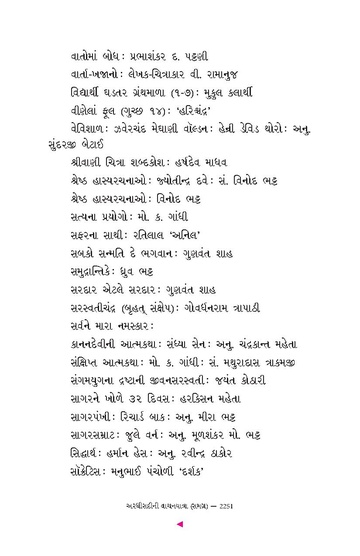 વાતોમાં બોધ : પ્રભાશંકર દ. પટ્ટણી
વાર્તા-ખજાનો : લેખક-ચિત્રાકાર વી. રામાનુજ
વિદ્યાર્થી ઘડતર ગ્રંથમાળા (૧-૭) : મુકુલ કલાર્થી
વીણેલાં ફૂલ (ગુચ્છ ૧૪) : ‘હરિશ્ચંદ્ર’
વેવિશાળ : ઝવેરચંદ મેઘાણી વૉલ્ડન : હેન્રી ડેવિડ થોરો : અનુ.
સુંદરજી બેટાઈ
શ્રીવાણી ચિત્રા શબ્દકોશ : હર્ષદેવ માધવ
શ્રેષ્ઠ હાસ્યરચનાઓ : જ્યોતીન્દ્ર દવે : સં. વિનોદ ભટ્ટ
શ્રેષ્ઠ હાસ્યરચનાઓ : વિનોદ ભટ્ટ
સત્યના પ્રયોગો : મો. ક. ગાંધી
સફરના સાથી : રતિલાલ ‘અનિલ’
સબકો સન્મતિ દે ભગવાન : ગુણવંત શાહ
સમુદ્રાન્તિકે : ધ્રુવ ભટ્ટ
સરદાર એટલે સરદાર : ગુણવંત શાહ
સરસ્વતીચંદ્ર (બૃહત્ સંક્ષેપ) : ગોવર્ધનરામ ત્રાપાઠી
સર્વને મારા નમસ્કાર :
કાનનદેવીની આત્મકથા : સંધ્યા સેન : અનુ. ચંદ્રકાન્ત મહેતા
સંક્ષિપ્ત આત્મકથા : મો. ક. ગાંધી : સં. મથુરાદાસ ત્રાકમજી
સંગમયુગના દ્રષ્ટાની જીવનસરસ્વતી : જયંત કોઠારી
સાગરને ખોળે ૩૨ દિવસ : હરકિસન મહેતા
સાગરપંખી : રિચાર્ડ બાક : અનુ. મીરા ભટ્ટ
સાગરસમ્રાટ : જુલે વર્ન : અનુ. મૂળશંકર મો. ભટ્ટ
સિદ્ધાર્થ : હર્માન હેસ : અનુ. રવીન્દ્ર ઠાકોર
સૉક્રેટિસ : મનુભાઈ પંચોળી ‘દર્શક’
અરધીસદીની વાચનયાત્રા (સમગ્ર) — 2251